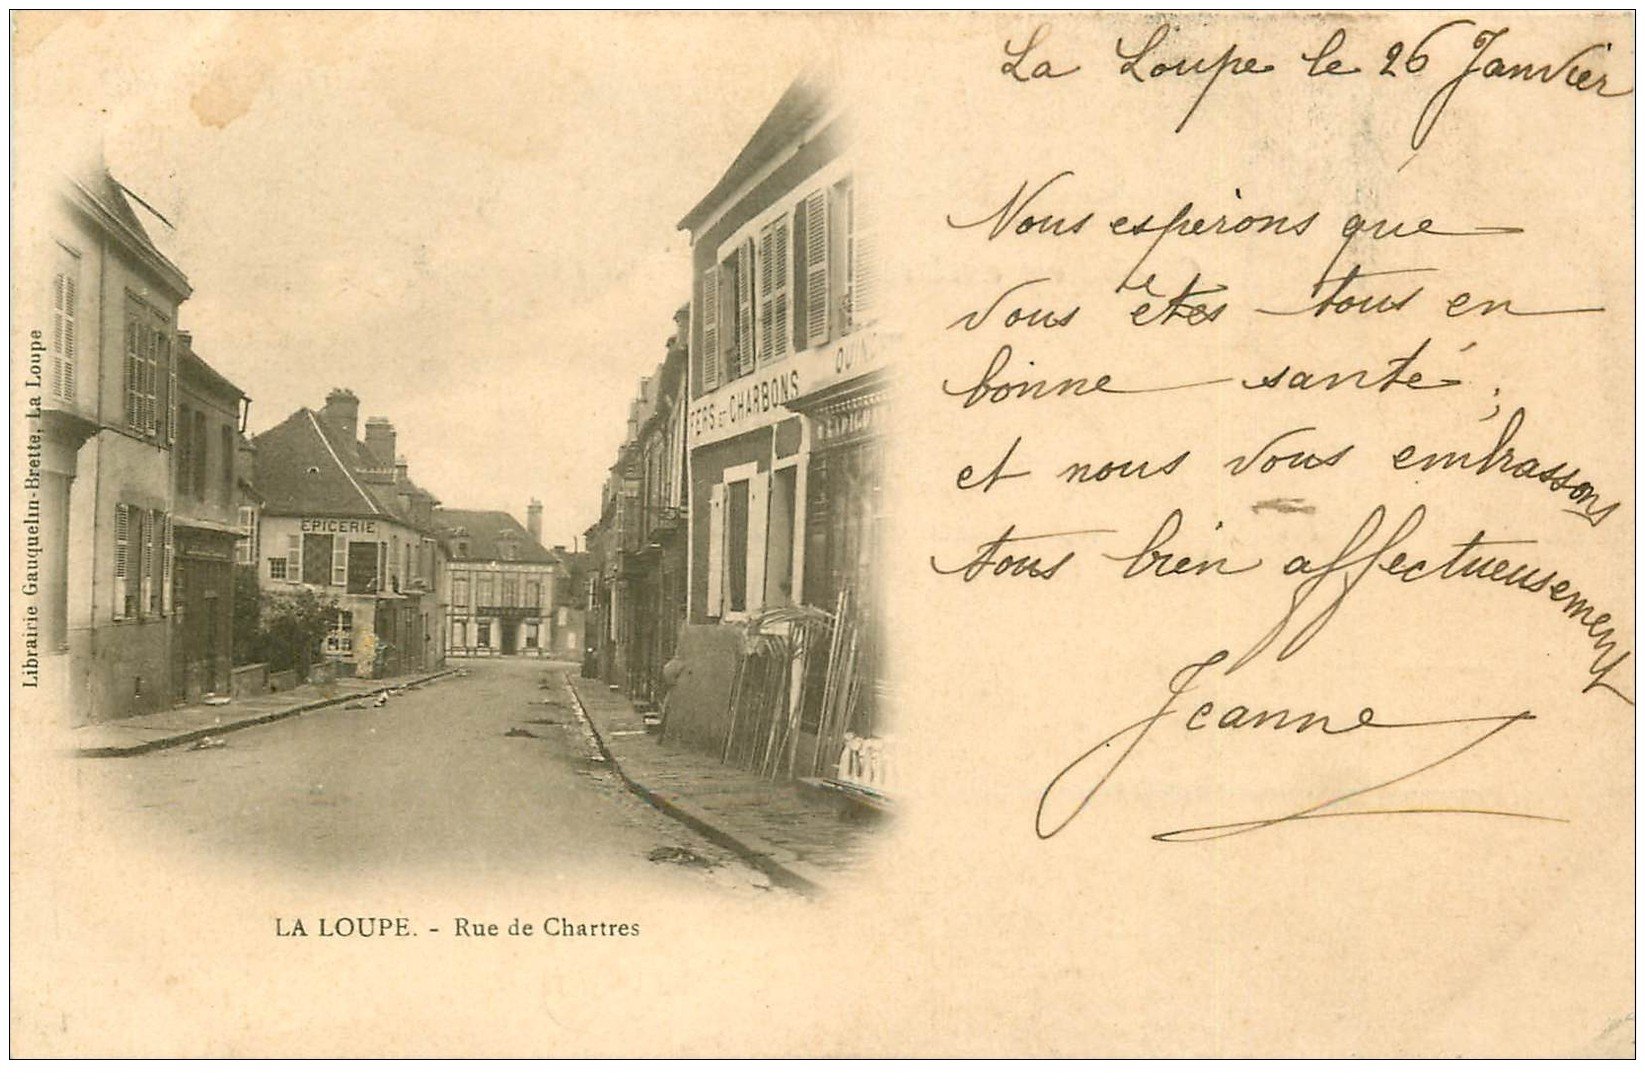 La Loupe le 26 Janvier
Nous espérons que
vous êtes tous en
bonne santé;
et nous vous embrassons
tous bien affectueusement
Jeanne
Librairie Gauquelin-Brette, La Loupe
EPICERIE
FERS ET CHARBONS
QUIN
LA LOUPE. - Rue de Chartres